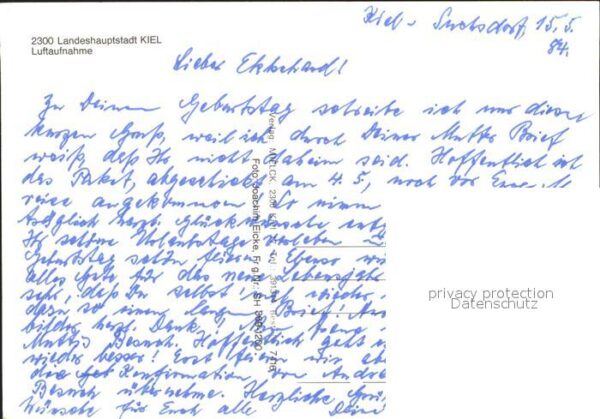 2300 Landeshauptstadt KIEL
Luftaufnahme
Kiel - Suchsdorf, 15.5.
84.
Lieber Ekkehard!
Zu Deinem Geburtstag schreibe ich nur diesen
kurzen Gruß, weil ich durch Deiner Mutter Brief
weiß, daß Ihr nicht daheim seid. Hoffentlich ist
das Paket, abgeschickt am 4.5, noch vor Eurer
reise angekommen So nimm
herzl. Glückwünsche
Ihr schöne Urlaubstage verleben
Geburtstag schön feiern. Ebenso
alles Gute für das neue Lebensjahr
sehr, daß Du selbst wieder
dazu so einen langen Brief!
herzl. Dank!
Muttis Besuch. Hoffentlich geht
wieder besser! Erst feiern wir
die Konfirmation von
Besuch übernehme. Herzliche
Wünsche für Euch alle Deine
Verlag
Foto Joachim Eicke, Frg.Nr. SH
privacy protection
Datenschutz